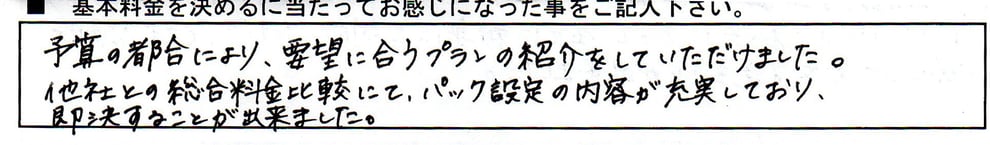 ■ 基本料金を決めるに当たってお感じになった事をご記入下さい。
予算の都合により、要望に合うプランの紹介をしていただけました。
他社との総合料金比較にて、パック設定の内容が充実しており、
即決することが出来ました。